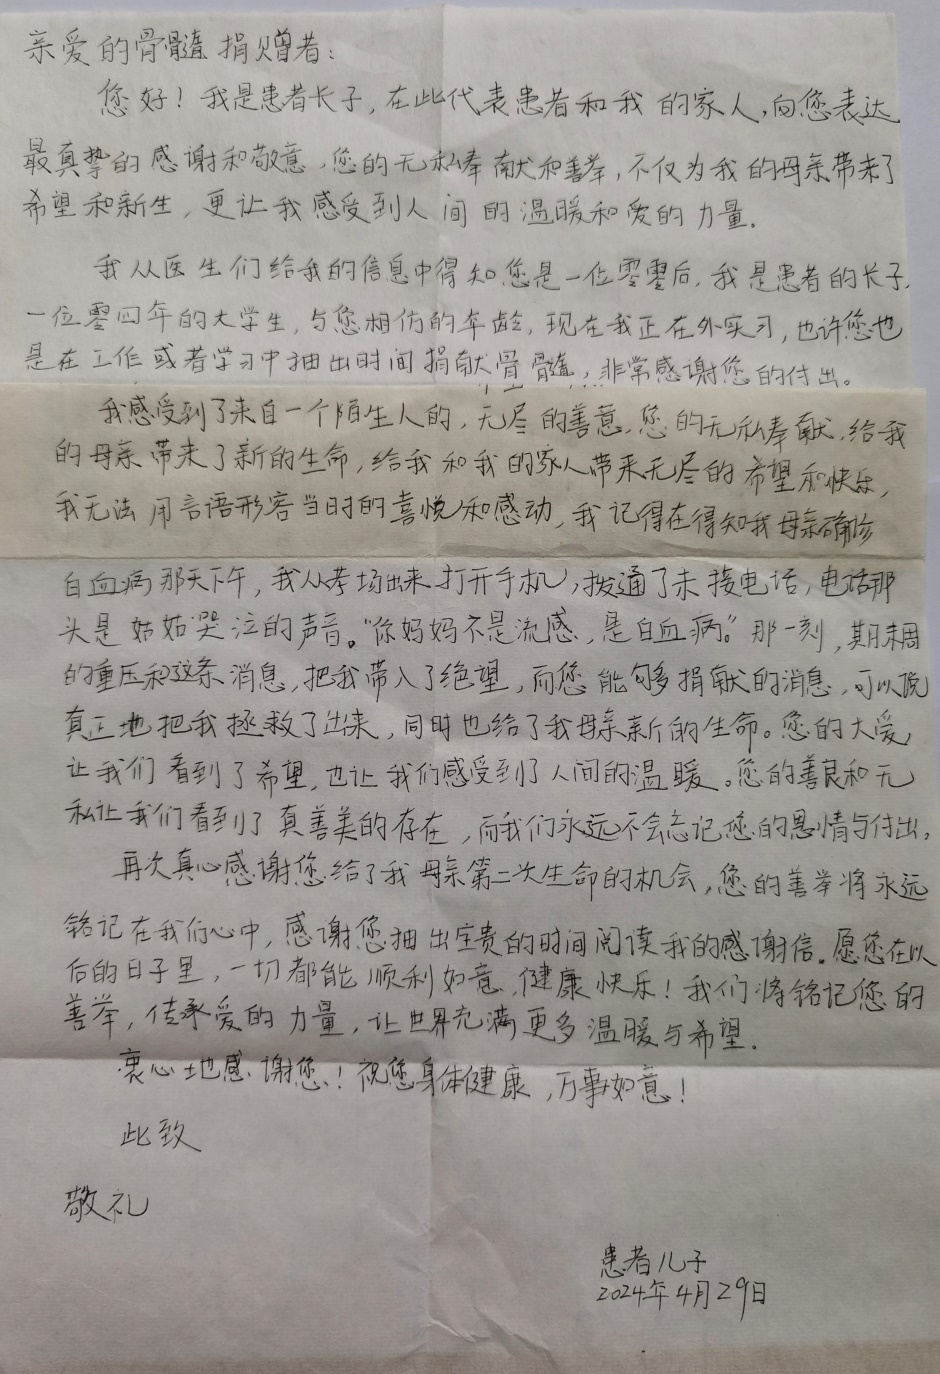 亲爱的骨髓捐赠者：
您好！我是患者长子，在此代表患者和我的家人，向您表达
最真挚的感谢和敬意，您的无私奉献和善举，不仅为我的母亲带来了
希望和新生，更让我感受到人间的温暖和爱的力量。
我从医生们给我的信息中得知您是一位零零后，我是患者的长子，
一位零四年的大学生，与您相仿的年龄，现在我正在外实习，也许您也
是在工作或者学习中抽出时间捐献骨髓，非常感谢您的付出。
我感受到了来自一个陌生人的，无尽的善意，您的无私奉献，给我
的母亲带来了新的生命，给我和我的家人带来无尽的希望和快乐，
我无法用言语形容当时的喜悦和感动，我记得在得知我母亲确诊
白血病那天下午，我从考场出来打开手机，拨通了未接电话，电话那
头是姑姑哭泣的声音。“你妈妈不是流感，是白血病。”那一刻，期末周
的重压和这条消息，把我带入了绝望，而您能够捐献的消息，可以说
真正地把我拯救了出来，同时也给了我母亲新的生命。您的大爱
让我们看到了希望，也让我们感受到了人间的温暖。您的善良和无
私让我们看到了真善美的存在，而我们永远不会忘记您的恩情与付出，
再次真心感谢您给了我母亲第二次生命的机会，您的善举将永远
铭记在我们心中，感谢您抽出宝贵的时间阅读我的感谢信。愿您在以
后的日子里，一切都能顺利如意，健康快乐！我们将铭记您的
善举，传承爱的力量，让世界充满更多温暖与希望。
衷心地感谢您！祝您身体健康，万事如意！
此致
敬礼
患者儿子
2024年4月29日